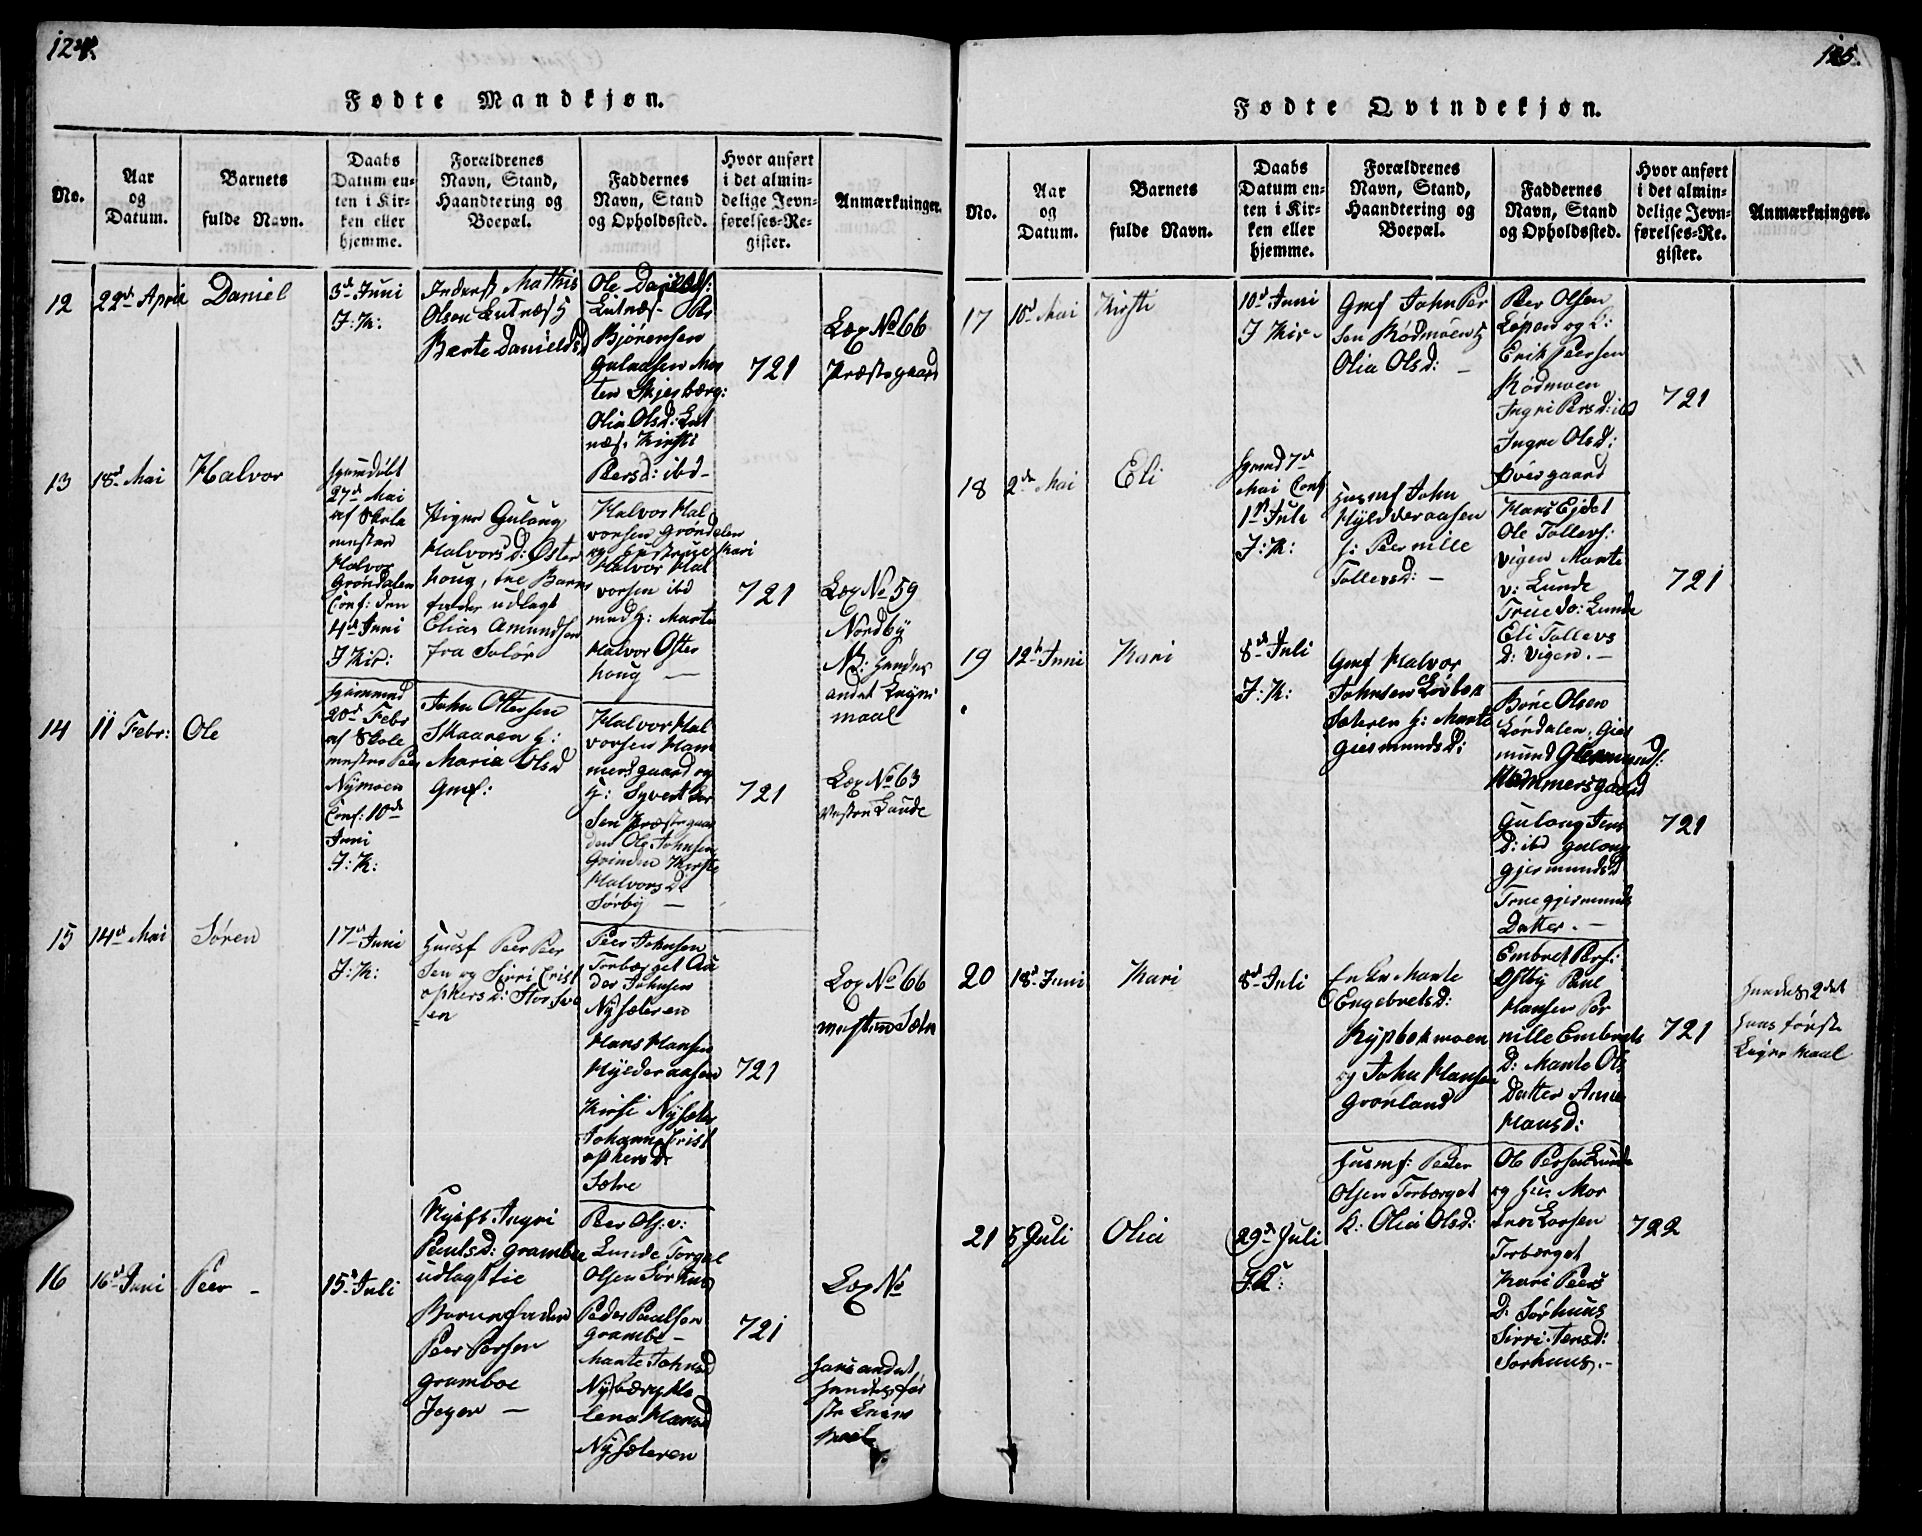 124.
Fødte Mandkjøn.
No.
Aar
og
Datum.
Barnets
fulde Navn.
Daabs
Datum en-
ten i Kir-
ken eller
hjemme.
Forældrenes
Navn, Stand,
Haandtering og
Boepæl.
Faddernes
Navn, Stand
og Opholdssted.
Hvor anført
i det almin-
delige Jevn-
førelses-Re-
gister.
Anmærkninger.
12
22de April
Daniel
3de Juni
J: K:
Mathis
Olsen Lutnæs
Berte Danielsd
Ole Danields:
Lutnæs. Per
Bjørensen
Gulaasen Mor
ten Skjesbærg:
Olia Olsd: Lut
næs. Kirsti
Persd: ibd
721
Lox No 66
Præstegaard
13
18de Mai
Halvor
hjemdøbt
27de Mai
af Skole
mester
Halvor
Grøndalen
Conf: den
4de Juni
J Kir:
Pigen Gulaug
Halvorsd: Øster
houg, til Barne
fader udlagt
Elias Amundsen
fra Solør
Halvor Hal
vorsen Grøndalen
og Kari
Halvor Hal
vorsen ibd
med H: Marte
Halvor Øster
houg —
721
Lox No 59
Nordby
NB: hendes
andet Leyer
maal
14
11 Febr:
Ole
hjemmed
20de Febr
af Skole
mester Peer
Nymoen
Conf: 10de
Juni
J: K:
John Ottersen
Skaaren H:
Maria Olsd
Gmf:
Halvor Hal
vorsen Ham
mersgaard og
H: Syvert
Sen Præstegaar
den Ole Johnsen
Grinden Kirsti
Halvorsd:
Sørby —
721
Lox No 63
Vestre Lunde
15
14de Mai
Søren
17de Juni
J: K:
Huusf Peer Peer
Sen og Sirri Crist
ophersd: Storsve
en
Peer Johnsen
Torberget An
der Johnsen
Nysæteren
Hans Hansen
Hylderaasen
Kirsti Nysæter
Johanne Crist
ophersd:
Sætre
721
Lox No 66
16
16de Juni
Peer –
15de Juli
Ingri
Paulsd: Gramboe
udlagt tie
Barnefader
Peer Persen
Gramboe
—
Peer Ols: v:
Lunde Torgal
Olsen Sørhus
Peder Paulsen
Grambe –
Marte Johnsd
Nyberg He
lena Hansd
Nysæteren
721
Lox No
hans andet
hendes før
ste Leier
maal
125.
Fødte Qvindekjøn.
No.
Aar
og
Datum.
Barnets
fulde Navn.
Daabs
Datum en-
ten i Kir-
ken eller
hjemme.
Forældrenes
Navn, Stand,
Haandtering og
Boepæl.
Faddernes
Navn, Stand
og Opholdssted.
Hvor anført
i det almin-
delige Jevn-
førelses-Re-
gister.
Anmærkninger.
17
10de Mai
Kirsti
10de Juni
J Kir–
Gmf John Per
Sen Rødmoen H
Olia Olsd: –
Per Olsen
og H:
Erik Peersen
Rødmoen
Ingri Persd: ibd
Ingre Olsd:
Øvergaard
721
18
2de Mai
Eli
hjemd 7de
Mai Conf
1st Juli
J: K:
Husmf John
Hylderaasen
H: Peernille
Tollevsd: –
Hans Ejdet
Ole Tollevs:
Vigen Marte
v: Lunde
True do: Lunde
Eli Tollevs
D: Vigen. –
721
19
12te Juni
Kari
8de Juli
J: K:
Gmf Halvor
Johnsen Løvbek
Sæteren H: Marte
Giermundsd:
Børe Olsen
Lørdalen, Gier
mund Giermunds:
Hammersgaard
Gulaug Jens
D: ibd Gulaug
Gjermundsd
True Gjermunds
Datter. –
721
20
18de Juni
Kari
8de Juli
Enke Marte
Engebretsd:
Rypbekmoen
og John Hansen
Grønland
Embret Pers:
Østby Paul
Hansen Per
nille Embrets
D: Marte Ols
Datter Anne
Hansd:
721
hendes 2det
hans første
Leyermaal
21
5 Juli
Olia
29de Juli
J: K:
Husmf: Peder
Olsen Torberget
K: Olia Olsd:
Ole Persen Lunde
og Hu. Mor
ten Larsen
Torberget
Kari Peers
D: Sørhuus
Sirri Jensd:
Sørhuus. –
722